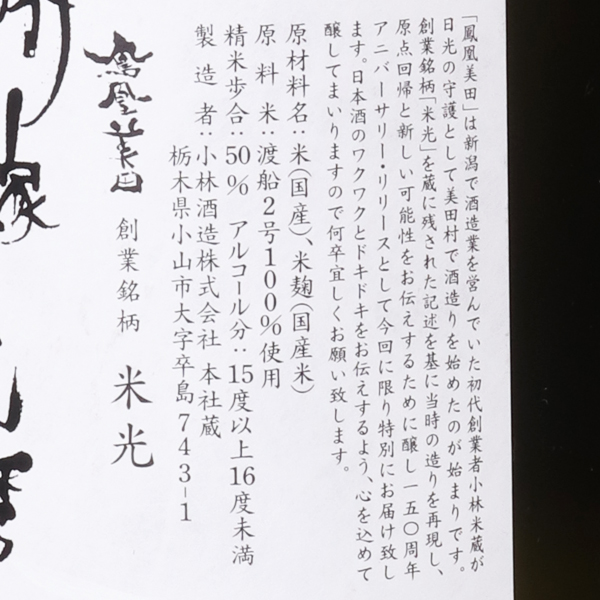 「鳳凰美田」は新潟で酒造業を営んでいた初代創業者小林米蔵が
日光の守護として美田村で酒造りを始めたのが始まりです。
創業銘柄「米光」を蔵に残された記述を基に当時の造りを再現し、
原点回帰と新しい可能性をお伝えするために醸し一五〇周年
アニバーサリー・リリースとして今回に限り特別にお届け致し
ます。日本酒のワクワクとドキドキをお伝えするよう、心を込めて
醸してまいりますので何卒宜しくお願い致します。
原材料名：米（国産）、米麹（国産米）
原料米：渡船2号100%使用
精米歩合：50% アルコール分：15度以上16度未満
製造者：小林酒造株式会社 本社蔵
栃木県小山市大字卒島743-1
鳳凰美田 創業銘柄 米光